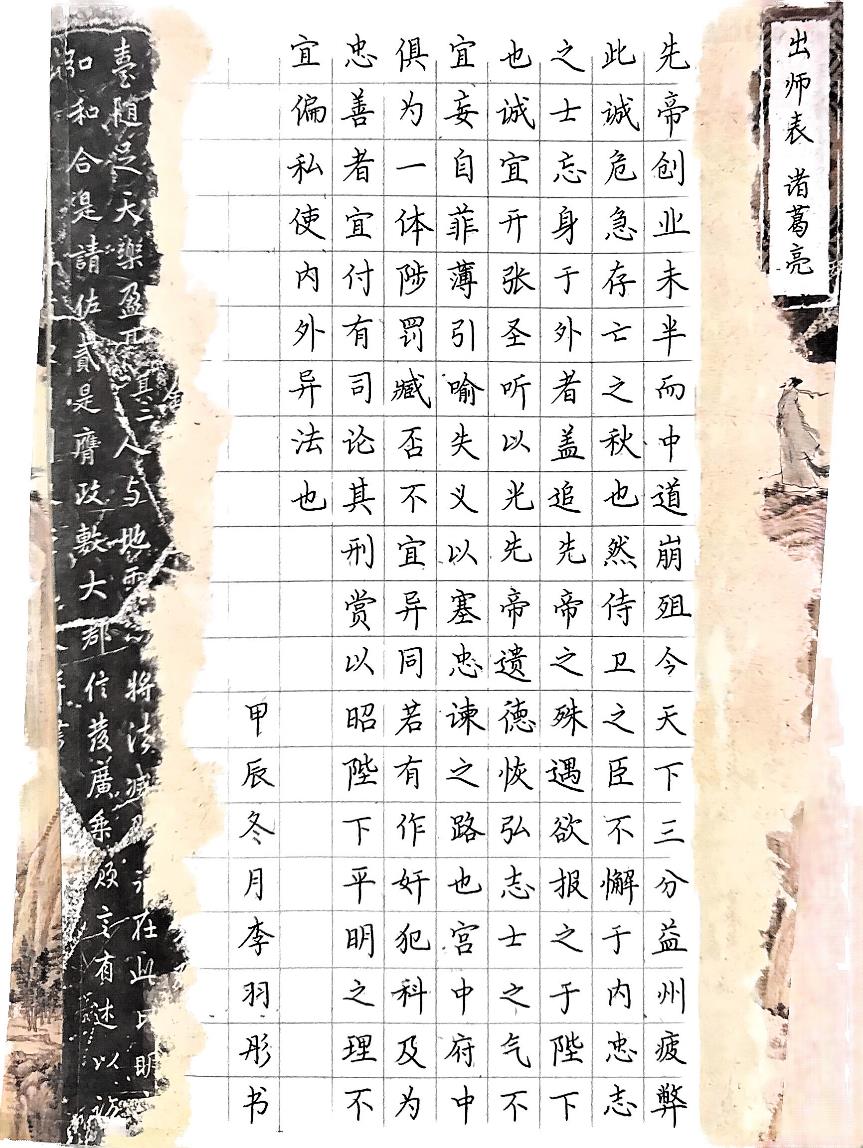 出师表 诸葛亮
先帝创业未半而中道崩殂今天下三分益州疲弊
此诚危急存亡之秋也然侍卫之臣不懈于内忠志
之士忘身于外者盖追先帝之殊遇欲报之于陛下
也诚宜开张圣听以光先帝遗德恢弘志士之气不
宜妄自菲薄引喻失义以塞忠谏之路也宫中府中
俱为一体陟罚臧否不宜异同若有作奸犯科及为
忠善者宜付有司论其刑赏以昭陛下平明之理不
宜偏私使内外异法也
甲辰冬月李羽彤书
臺随足天樂盈其二人与地將法在此明
和合是請佐貳是膺政數大都信發廣乘言有述以